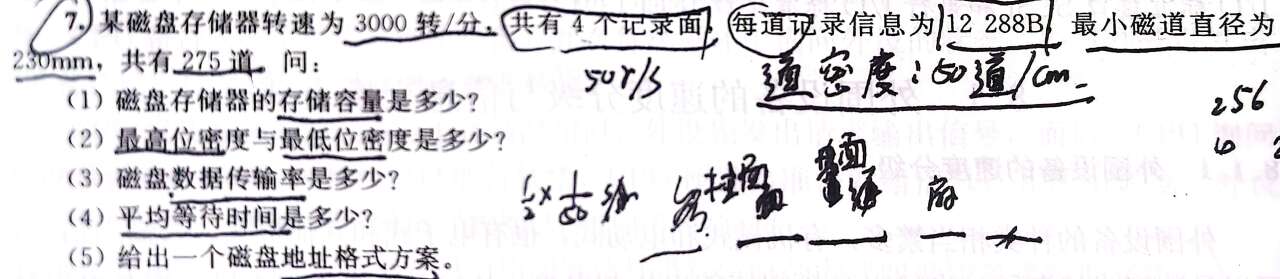 7. 某磁盘存储器转速为 3000 转/分，共有 4 个记录面，每道记录信息为 12 288B，最小磁道直径为
230mm，共有 275 道。问：
50r/s 道密度：50道/cm
（1）磁盘存储器的存储容量是多少？
256
（2）最高位密度与最低位密度是多少？
（3）磁盘数据传输率是多少？
（4）平均等待时间是多少？
1/2 × 1/50
（5）给出一个磁盘地址格式方案。
8.4.1 外围设备的速度分级